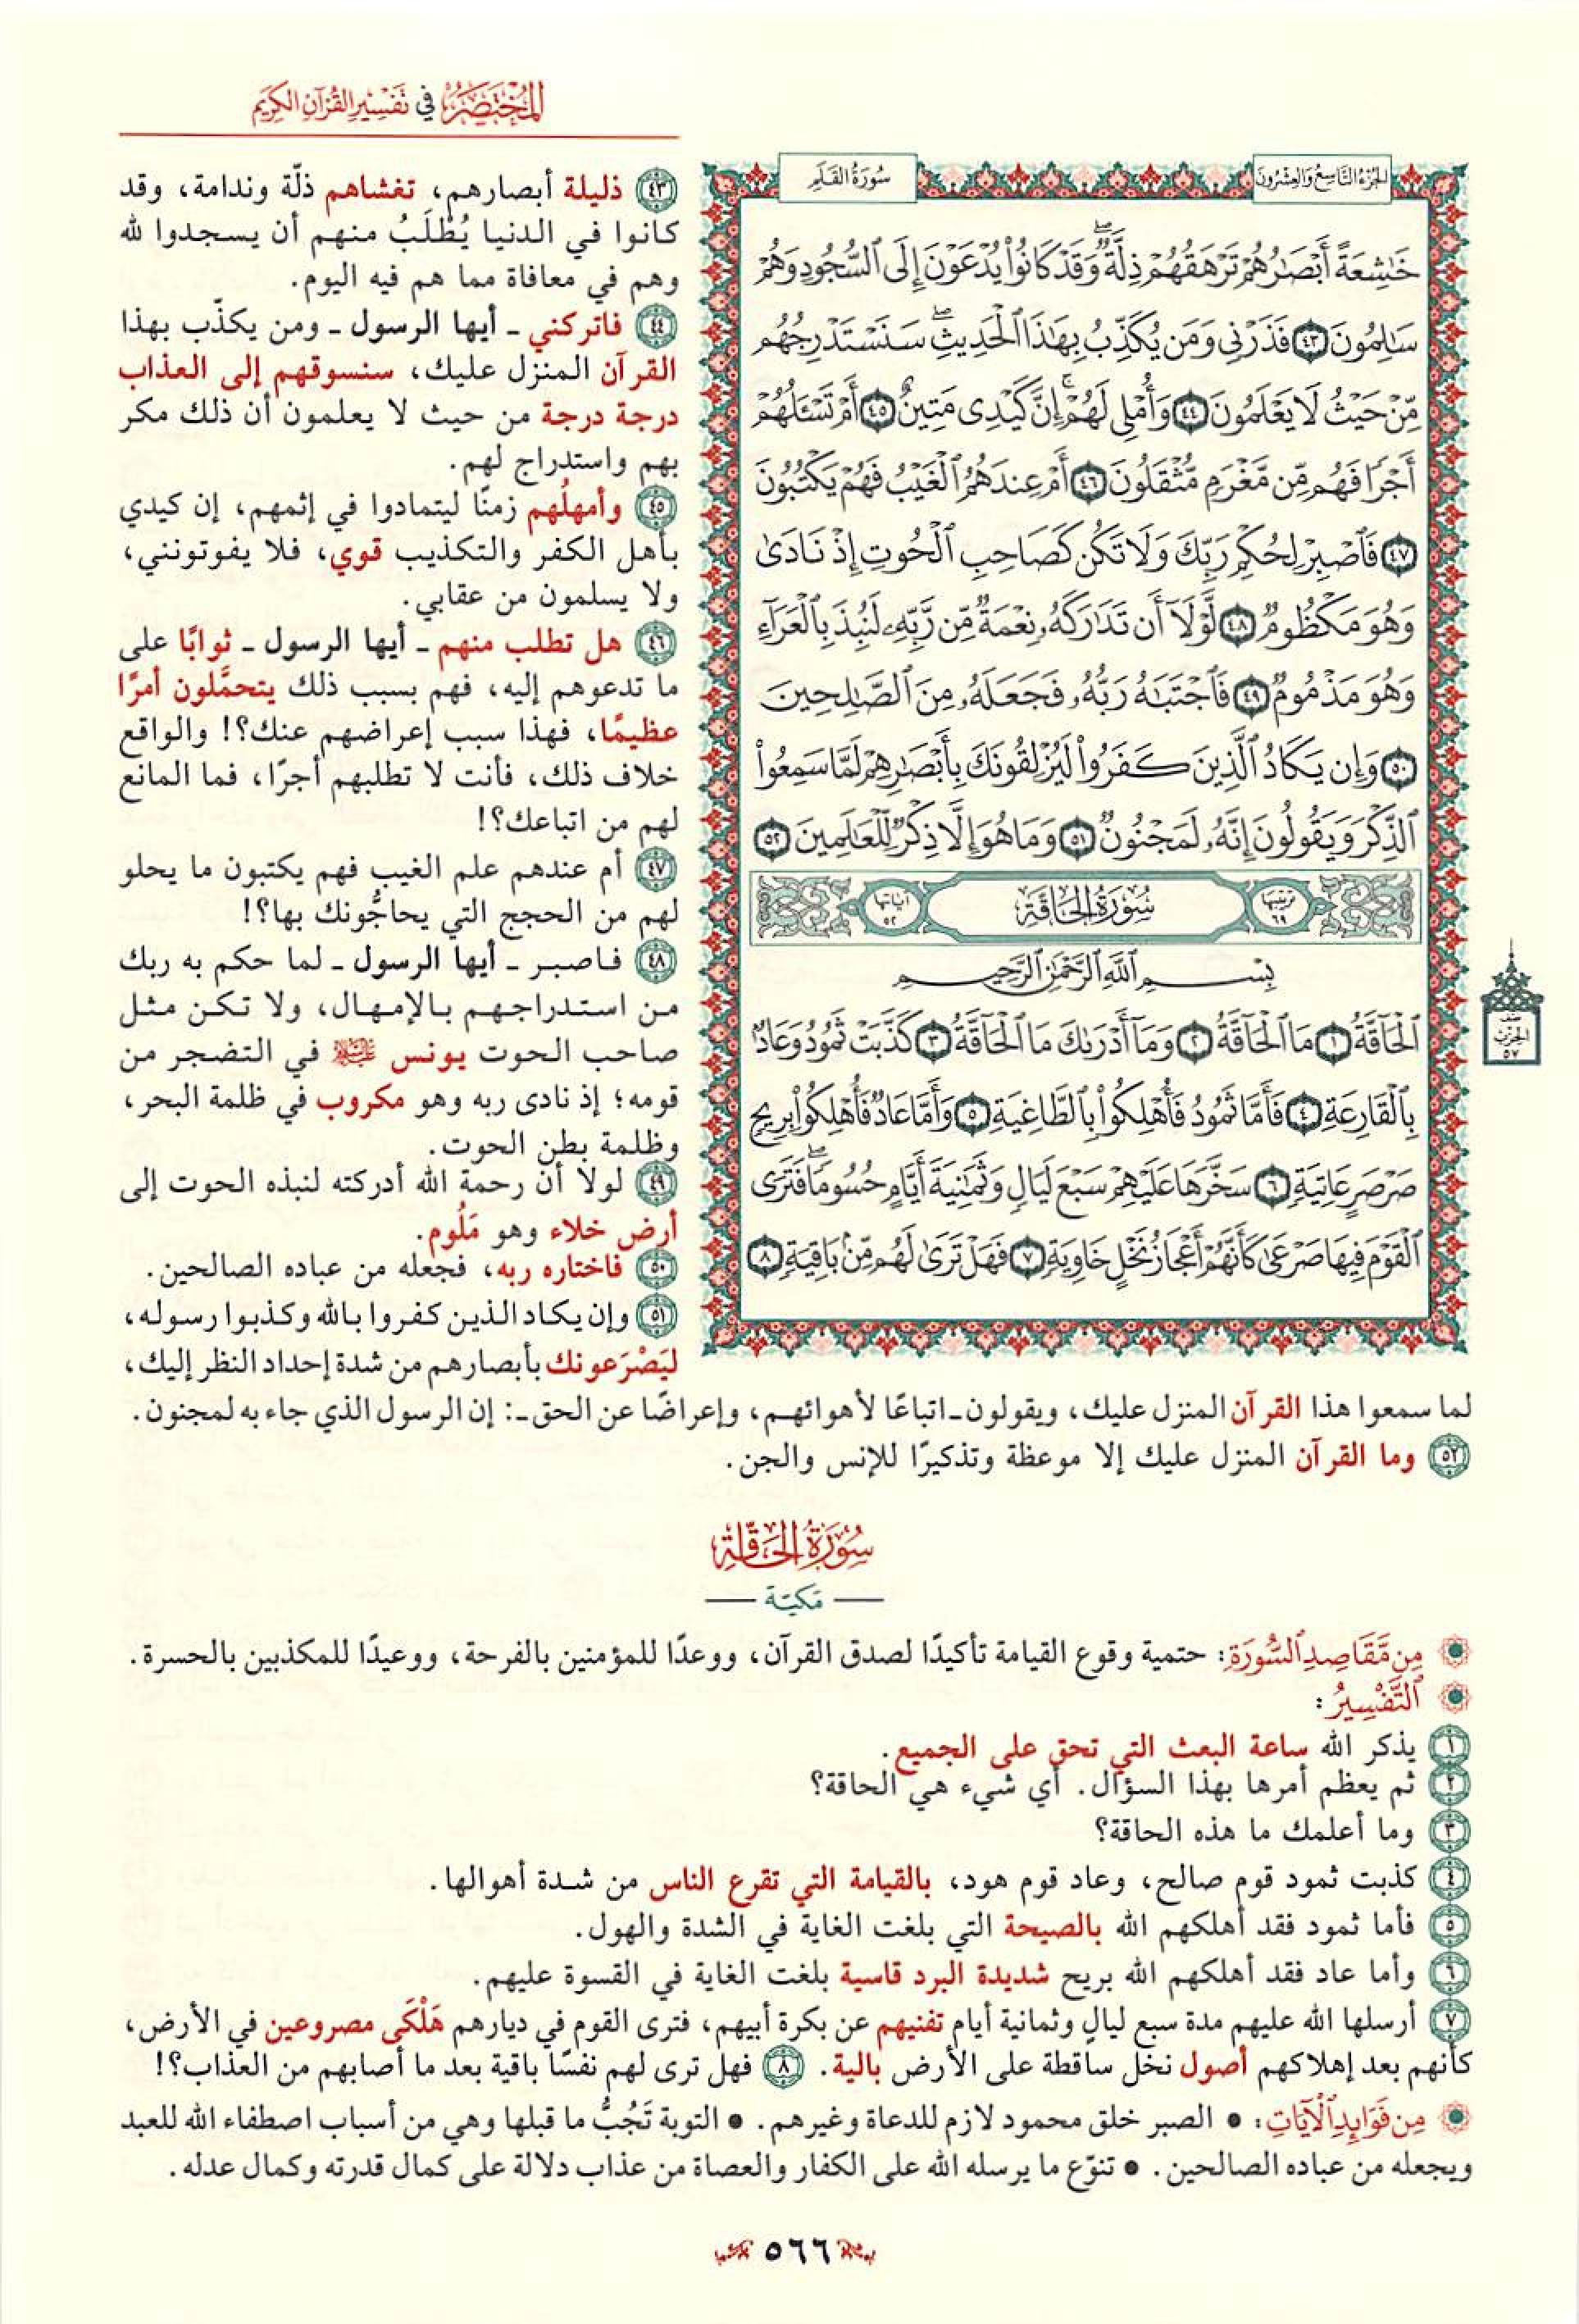 المختصر في تفسير القرآن الكريم
الجزء التاسع والعشرون
سورة القلم
خَٰشِعَةً أَبۡصَٰرُهُمۡ تَرۡهَقُهُمۡ ذِلَّةٞۖ وَقَدۡ كَانُواْ يُدۡعَوۡنَ إِلَى ٱلسُّجُودِ وَهُمۡ
سَٰلِمُونَ ٤٣ فَذَرۡنِي وَمَن يُكَذِّبُ بِهَٰذَا ٱلۡحَدِيثِۖ سَنَسۡتَدۡرِجُهُم
مِّنۡ حَيۡثُ لَا يَعۡلَمُونَ ٤٤ وَأُمۡلِي لَهُمۡۚ إِنَّ كَيۡدِي مَتِينٌ ٤٥ أَمۡ تَسۡـَٔلُهُمۡ
أَجۡرٗا فَهُم مِّن مَّغۡرَمٖ مُّثۡقَلُونَ ٤٦ أَمۡ عِندَهُمُ ٱلۡغَيۡبُ فَهُمۡ يَكۡتُبُونَ
٤٧ فَٱصۡبِرۡ لِحُكۡمِ رَبِّكَ وَلَا تَكُن كَصَاحِبِ ٱلۡحُوتِ إِذۡ نَادَىٰ
وَهُوَ مَكۡظُومٞ ٤٨ لَّوۡلَآ أَن تَدَٰرَكَهُۥ نِعۡمَةٞ مِّن رَّبِّهِۦ لَنُبِذَ بِٱلۡعَرَآءِ
وَهُوَ مَذۡمُومٞ ٤٩ فَٱجۡتَبَٰهُ رَبُّهُۥ فَجَعَلَهُۥ مِنَ ٱلصَّٰلِحِينَ
٥٠ وَإِن يَكَادُ ٱلَّذِينَ كَفَرُواْ لَيُزۡلِقُونَكَ بِأَبۡصَٰرِهِمۡ لَمَّا سَمِعُواْ
ٱلذِّكۡرَ وَيَقُولُونَ إِنَّهُۥ لَمَجۡنُونٞ ٥١ وَمَا هُوَ إِلَّا ذِكۡرٞ لِّلۡعَٰلَمِينَ ٥٢
ترتيبها ٦٩ سُورَةُ الحَاقَّةِ آياتها ٥٢
بِسۡمِ ٱللَّهِ ٱلرَّحۡمَٰنِ ٱلرَّحِيمِ
ٱلۡحَآقَّةُ ١ مَا ٱلۡحَآقَّةُ ٢ وَمَآ أَدۡرَىٰكَ مَا ٱلۡحَآقَّةُ ٣ كَذَّبَتۡ ثَمُودُ وَعَادُۢ
بِٱلۡقَارِعَةِ ٤ فَأَمَّا ثَمُودُ فَأُهۡلِكُواْ بِٱلطَّاغِيَةِ ٥ وَأَمَّا عَادٞ فَأُهۡلِكُواْ بِرِيحٖ
صَرۡصَرٍ عَاتِيَةٖ ٦ سَخَّرَهَا عَلَيۡهِمۡ سَبۡعَ لَيَالٖ وَثَمَٰنِيَةَ أَيَّامٍ حُسُومٗاۖ فَتَرَى
ٱلۡقَوۡمَ فِيهَا صَرۡعَىٰ كَأَنَّهُمۡ أَعۡجَازُ نَخۡلٍ خَاوِيَةٖ ٧ فَهَلۡ تَرَىٰ لَهُم مِّنۢ بَاقِيَةٖ ٨
نصف
الحزب
٥٧
٤٣ ذليلة أبصارهم، تغشاهم ذلّة وندامة، وقد
كانوا في الدنيا يُطْلَبُ منهم أن يسجدوا لله
وهم في معافاة مما هم فيه اليوم.
٤٤ فاتركني ـ أيها الرسول ـ ومن يكذّب بهذا
القرآن المنزل عليك، سنسوقهم إلى العذاب
درجة درجة من حيث لا يعلمون أن ذلك مكر
بهم واستدراج لهم.
٤٥ وأمهلُهم زمنًا ليتمادوا في إثمهم، إن كيدي
بأهل الكفر والتكذيب قوي، فلا يفوتونني،
ولا يسلمون من عقابي.
٤٦ هل تطلب منهم ـ أيها الرسول ـ ثوابًا على
ما تدعوهم إليه، فهم بسبب ذلك يتحمَّلون أمرًا
عظيمًا، فهذا سبب إعراضهم عنك؟! والواقع
خلاف ذلك، فأنت لا تطلبهم أجرًا، فما المانع
لهم من اتباعك؟!
٤٧ أم عندهم علم الغيب فهم يكتبون ما يحلو
لهم من الحجج التي يحاجُّونك بها؟!
٤٨ فاصبر ـ أيها الرسول ـ لما حكم به ربك
من استدراجهم بالإمهال، ولا تكن مثل
صاحب الحوت يونس عليه السلام في التضجر من
قومه؛ إذ نادى ربه وهو مكروب في ظلمة البحر،
وظلمة بطن الحوت.
٤٩ لولا أن رحمة الله أدركته لنبذه الحوت إلى
أرض خلاء وهو مَلُوم.
٥٠ فاختاره ربه، فجعله من عباده الصالحين.
٥١ وإن يكاد الذين كفروا بالله وكذبوا رسوله،
ليَصْرَعونك بأبصارهم من شدة إحداد النظر إليك،
لما سمعوا هذا القرآن المنزل عليك، ويقولون ـ اتباعًا لأهوائهم، وإعراضًا عن الحق ـ: إن الرسول الذي جاء به لمجنون.
٥٢ وما القرآن المنزل عليك إلا موعظة وتذكيرًا للإنس والجن.
سُورَةُ الحَاقَّةِ
مَكيّة
مِن مَّقَاصِدِ السُّورَةِ: حتمية وقوع القيامة تأكيدًا لصدق القرآن، ووعدًا للمؤمنين بالفرحة، ووعيدًا للمكذبين بالحسرة.
التَّفْسِيرُ:
١ يذكر الله ساعة البعث التي تحق على الجميع.
٢ ثم يعظم أمرها بهذا السؤال. أي شيء هي الحاقة؟
٣ وما أعلمك ما هذه الحاقة؟
٤ كذبت ثمود قوم صالح، وعاد قوم هود، بالقيامة التي تقرع الناس من شدة أهوالها.
٥ فأما ثمود فقد أهلكهم الله بالصيحة التي بلغت الغاية في الشدة والهول.
٦ وأما عاد فقد أهلكهم الله بريح شديدة البرد قاسية بلغت الغاية في القسوة عليهم.
٧ أرسلها الله عليهم مدة سبع ليالٍ وثمانية أيام تفنيهم عن بكرة أبيهم، فترى القوم في ديارهم هَلْكَى مصروعين في الأرض،
كأنهم بعد إهلاكهم أصول نخل ساقطة على الأرض بالية. ٨ فهل ترى لهم نفسًا باقية بعد ما أصابهم من العذاب؟!
مِن فَوَائِدِ الْآيَاتِ: • الصبر خلق محمود لازم للدعاة وغيرهم. • التوبة تَجُبُّ ما قبلها وهي من أسباب اصطفاء الله للعبد
ويجعله من عباده الصالحين. • تنوّع ما يرسله الله على الكفار والعصاة من عذاب دلالة على كمال قدرته وكمال عدله.
٥٦٦